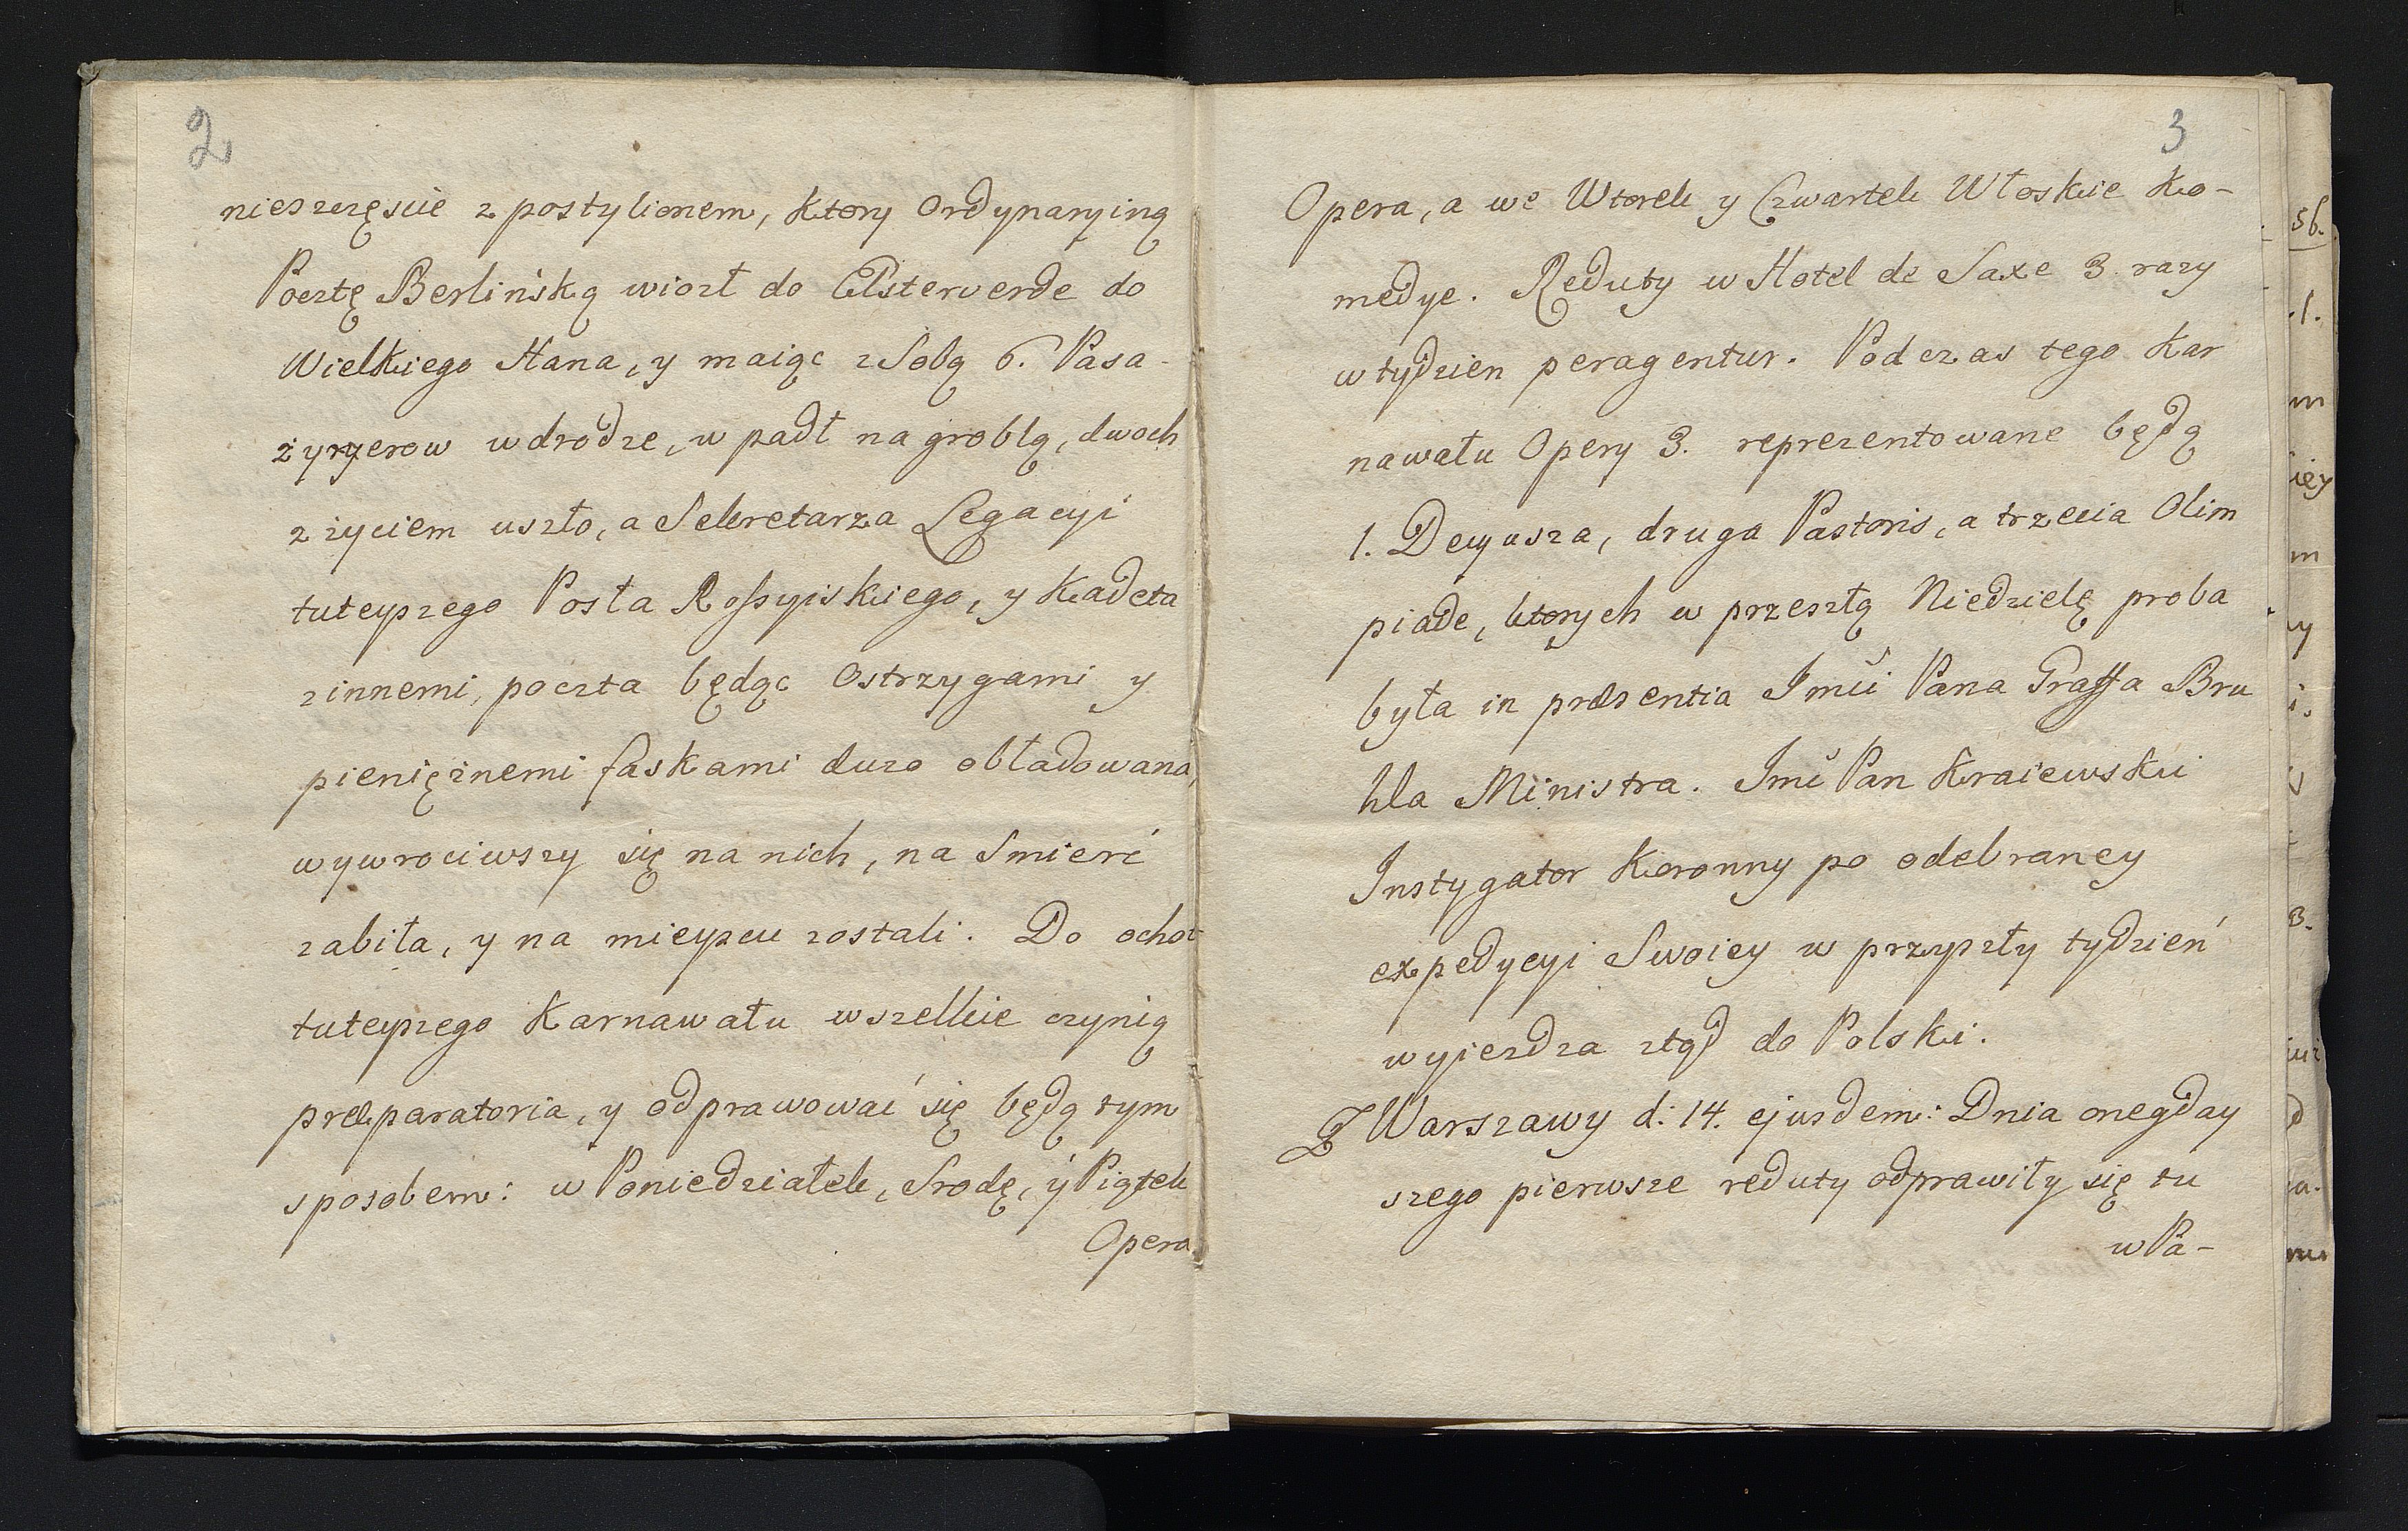 2
nieszczęscie z postylionem, ktory ordynaryiną
Pocztę Berlińską wiozł do Elsterverde do
Wielkiego Hana, y maiąc z Sobą 6. Pasa-
żyżerow w drodze, wpadł na groblą, dwoch
z życiem uszło, a Sekretarza Legacyi
tuteyszego Posła Rossyiskiego, y Kadeta
z innemi, poczta będąc Ostrzygami y
pieniężnemi faskami duzo obładowana,
wywrociwszy się na nich, na Smierć
zabiła, y na mieyscu zostali. Do ochot
tuteyszego Karnawału wszelkie czynią
præparatoria, y odprawować się będą tym
sposobem: w Poniedziałek, Srodę, y Piątek
Opera
3
Opera, a we Wtorek y Czwartek Włoskie Ko-
medye. Reduty w Hotel de Saxe 3. razy
w tydzien peragentur. Podczas tego Kar
nawału Opery 3. reprezentowane będą
1. Decyusza, druga Pastoris, a trzecia Olim
piade, ktorych w przeszłą Niedzielę proba
była in præsentia Jmći Pana Graffa Bru
hla Ministra. Jmć Pan Kraiewski
Instygator Koronny po odebraney
expedycyi Swoiey w przyszły tydzień
wyjezdza ztąd do Polski.
Z Warszawy d: 14. ejusdem: Dnia onegday
szego pierwsze reduty odprawiły się tu
w Pa-
56.